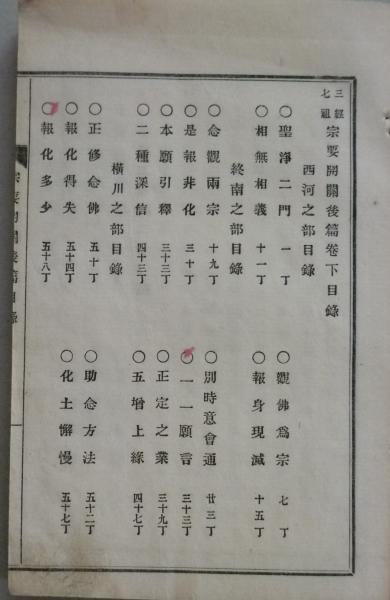 三經七祖 宗要開關後篇卷下目錄
西河之部目錄
○聖淨二門 一丁 ○觀佛爲宗 七丁
○相無相義 十一丁 ○報身現滅 十五丁
終南之部目錄
○念觀兩宗 十九丁 ○別時意會通 廿三丁
○是報非化 三十丁 ○一一願言 三十三丁
○本願引釋 三十三丁 ○正定之業 三十九丁
○二種深信 四十三丁 ○五增上緣 四十七丁
橫川之部目錄
○正修念佛 五十丁 ○助念方法 五十二丁
○報化得失 五十四丁 ○化土懈慢 五十七丁
○報化多少 五十八丁